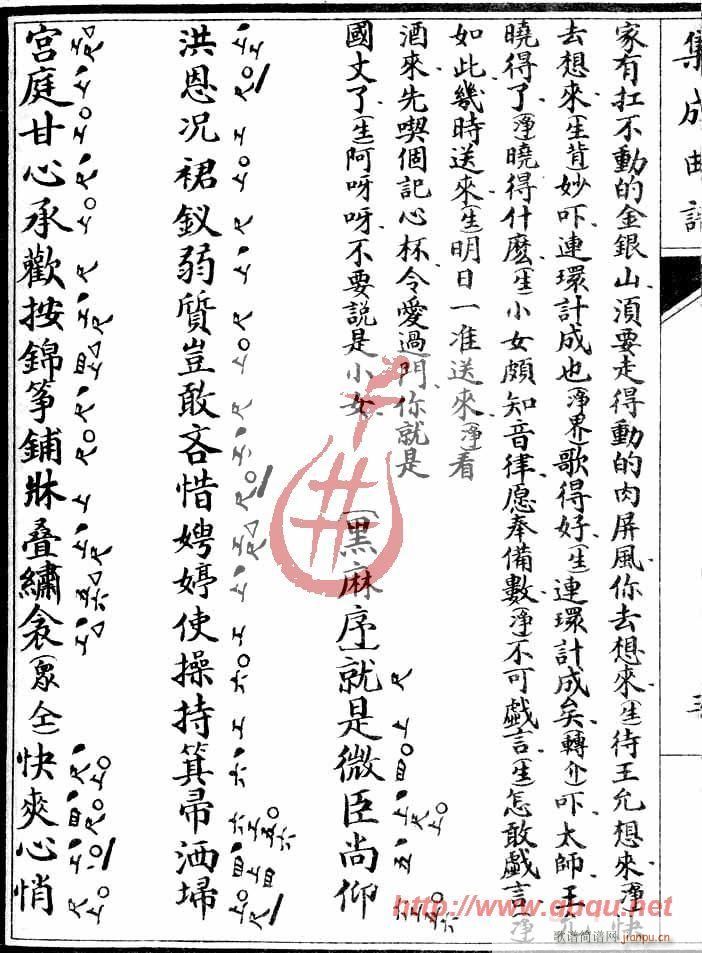 集成曲譜
家有扛不動的金銀山須要走得動的肉屏風你去想來(生)待王允想來(淨)快
去想來(生背)妙吓連環計成也(淨界)歌得好(生)連環計成矣(轉介)吓太師王允
曉得了(淨)曉得什麽(生)小女頗知音律愿奉備數(淨)不可戲言(生)怎敢戲言(淨)
如此幾時送來(生)明日一准送來(淨)看
酒來先喫個記心杯令愛過門你就是
國丈了(生)阿呀呀不要説是小女
[黑麻序]就是微臣尚仰
洪恩况裙釵弱質豈敢吝惜娉婷使操持箕帚洒埽
宫庭甘心承歡按錦筝鋪牀叠繡衾(眾仝)快爽心悄
http://www.qupu.net
歌谱简谱网 jianpu.cn